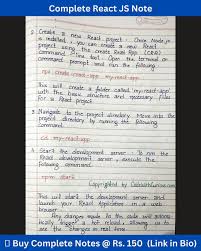 Complete React JS Note
2 Create a new React project: Once Node.js
is installed, you can create a new React
project using the create React App (CRA)
command line tool. Open your terminal or
command prompt and run the following
command
npx create-react-app my-react-app
This will create a folder called my-react-app
with the basic structure and necessary files
for a React project
3 Navigate to the project directory: Move into the
project directory by running the following
command
cd my-react-app
4 Start the development server: To run the
React development server, execute the
following command.
npm start
Copyrighted by
This will start the development server and
launch your React application in a web
browser.
Any changes made to the code will autom-
atically trigger a hot reload, allowing you to
see the changes in real time
Buy Complete Notes @ Rs. 150 (Link in Bio)